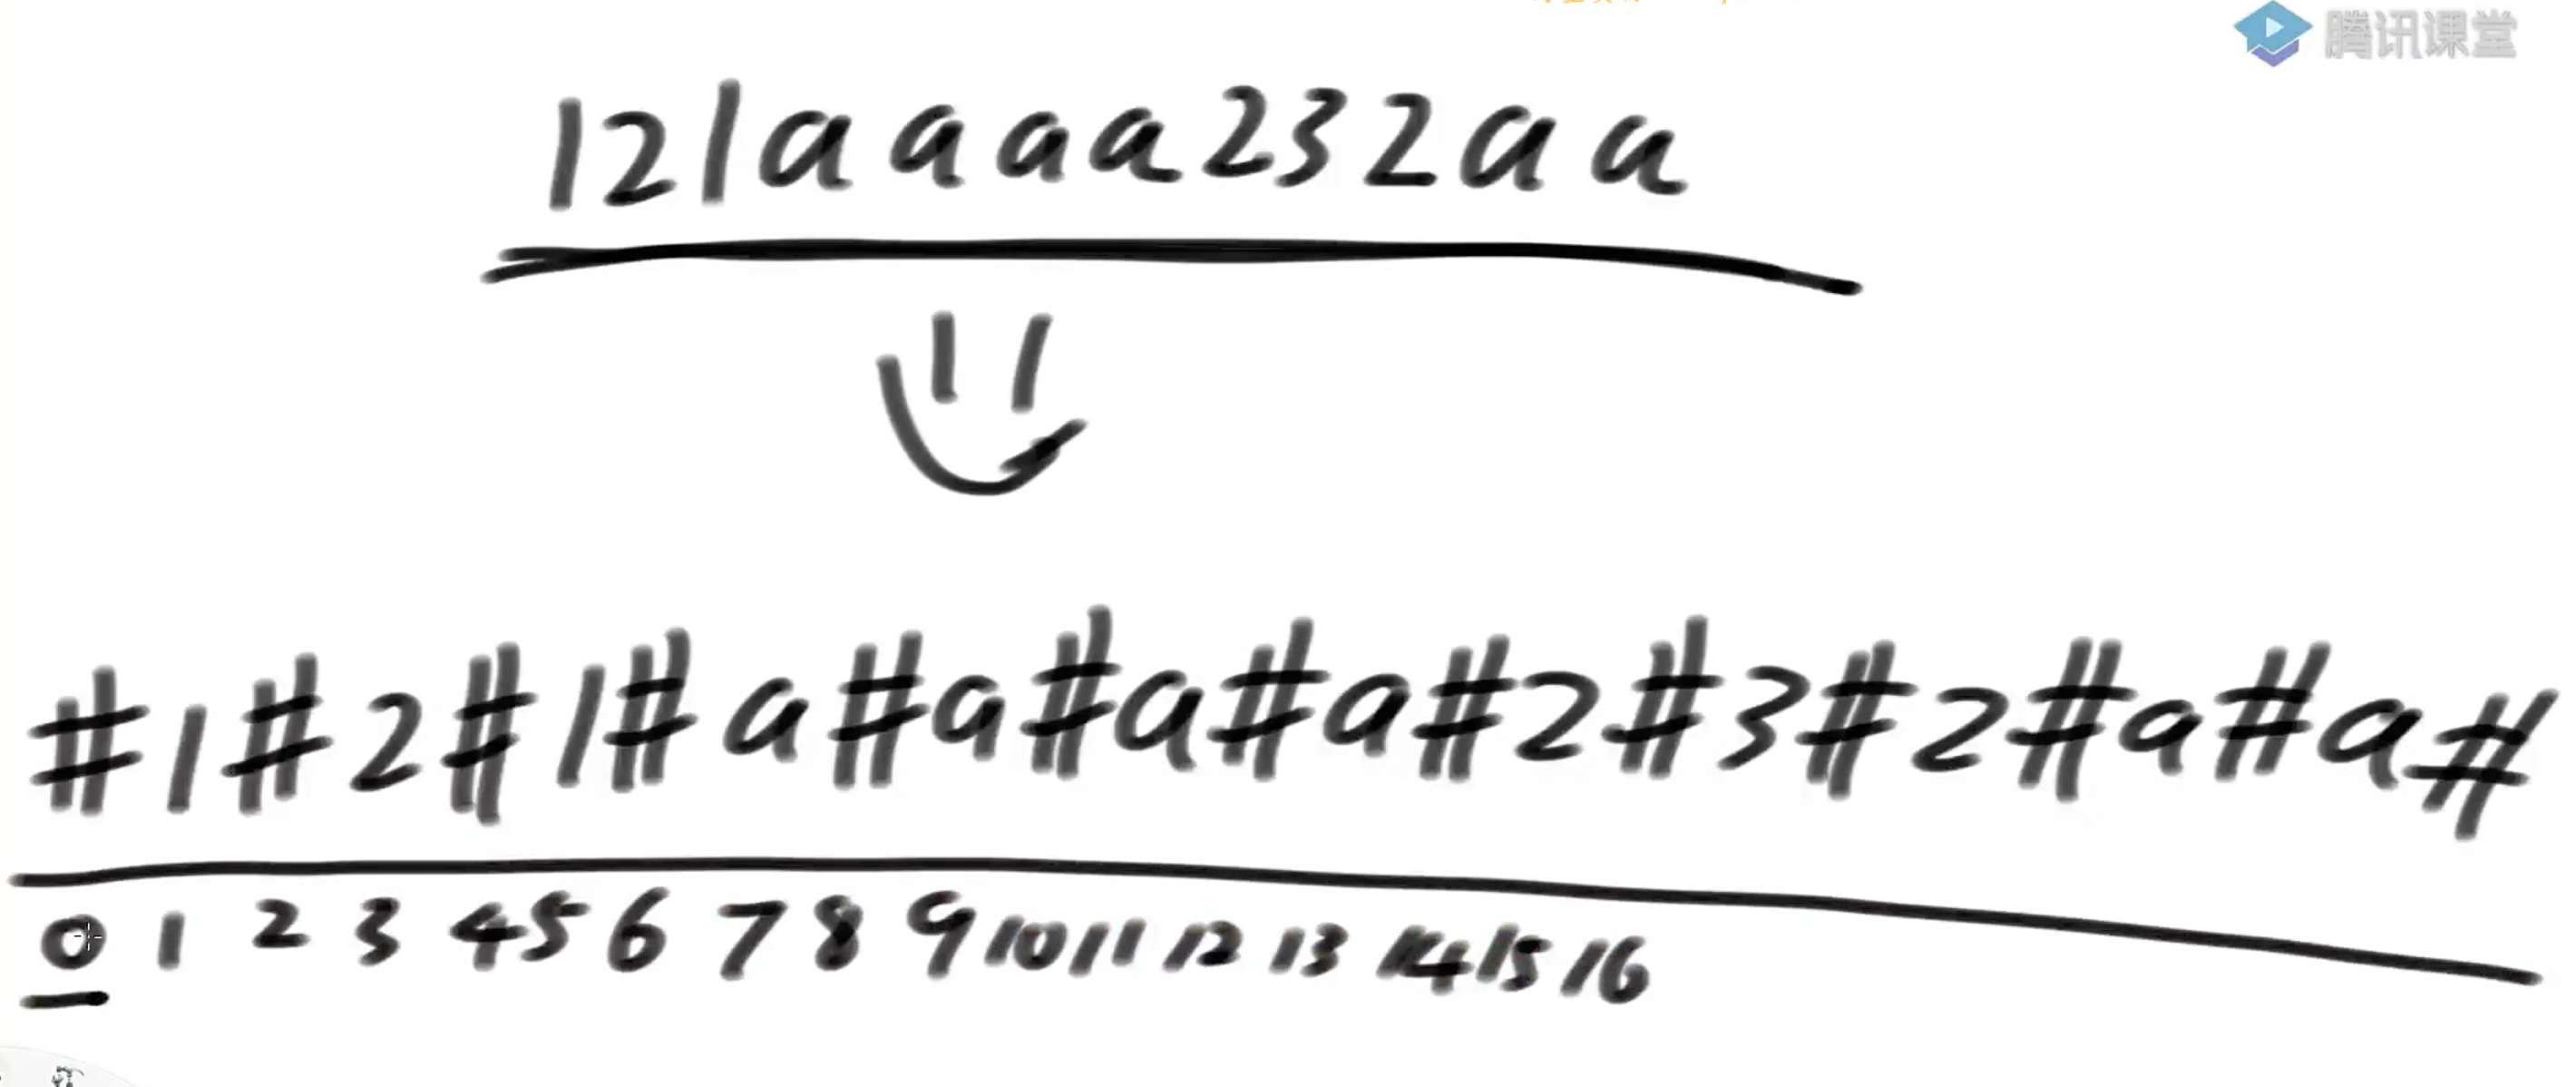 腾讯课堂
121aaaa232aa
#1#2#1#a#a#a#a#2#3#2#a#a#
0 1 2 3 4 5 6 7 8 9 10 11 12 13 14 15 16